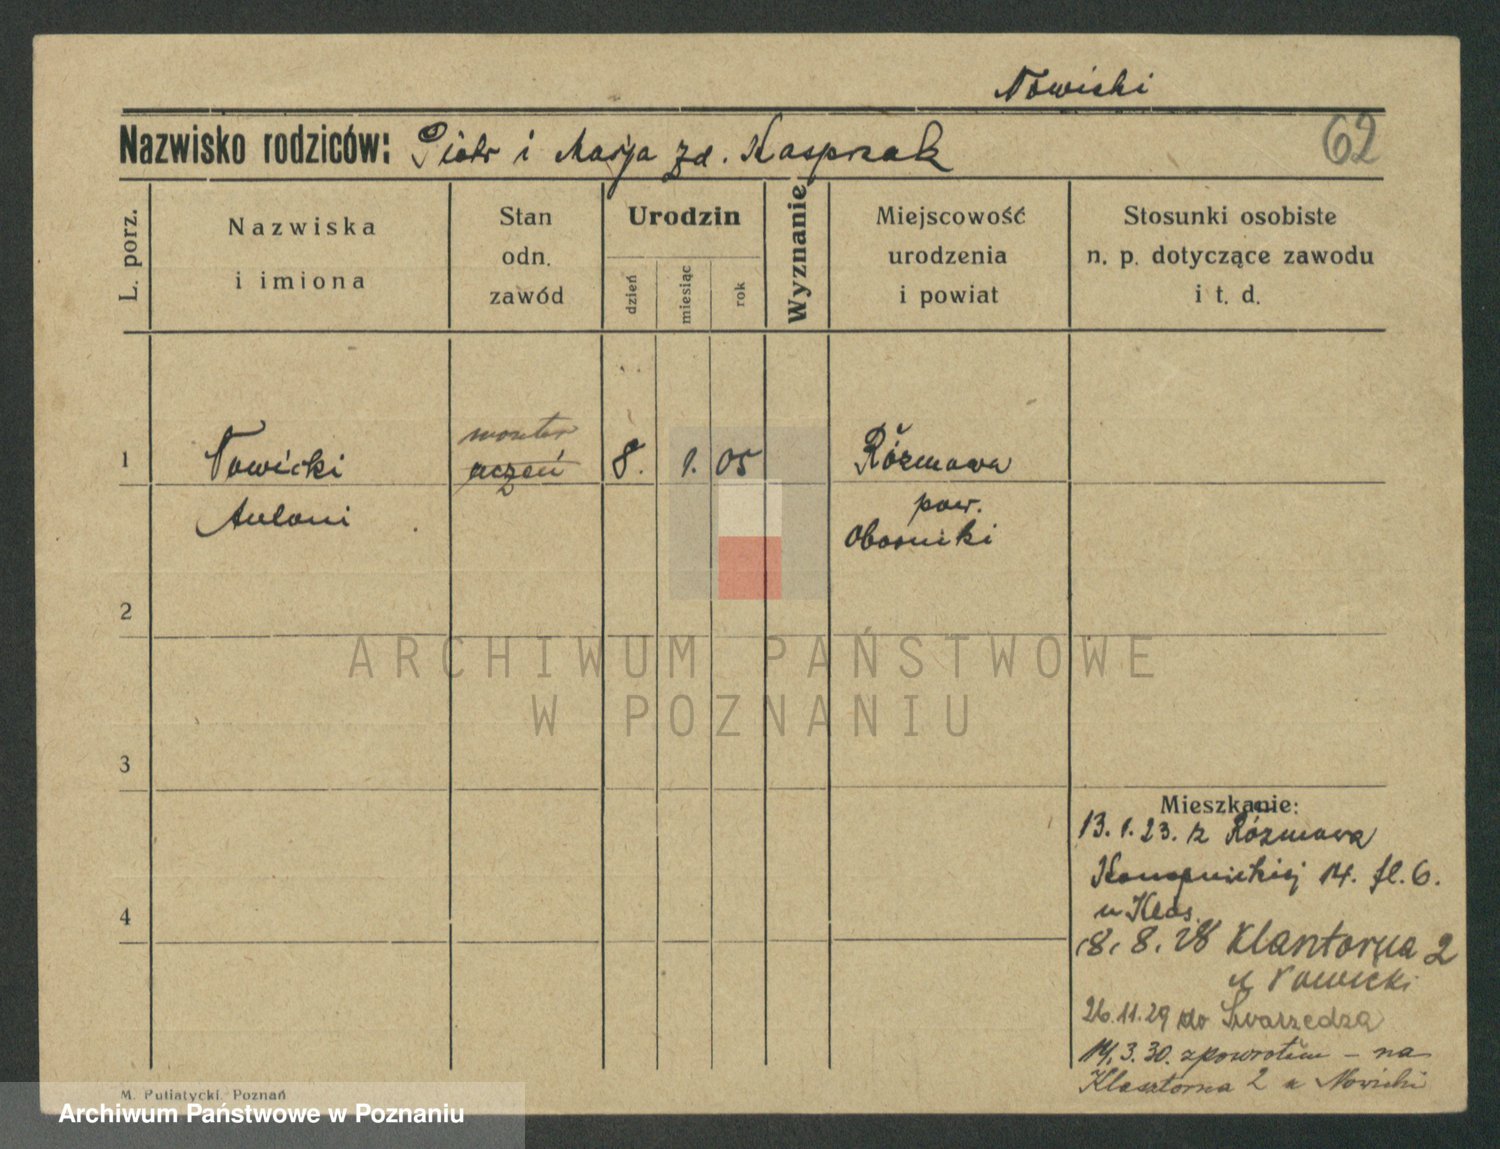 Nowicki
62
Nazwisko rodziców: Piotr i Marja zd. Kasprzak
L. porz.
Nazwiska
i imiona
Stan
odn.
zawód
Urodzin
dzień
miesiąc
rok
Wyznanie
Miejscowość
urodzenia
i powiat
Stosunki osobiste
n. p. dotyczące zawodu
i t. d.
monter
1 Nowicki uczeń 8. 1. 05 Różnowa
Antoni pow.
Oborniki
2
3
4
Mieszkanie:
13. 1. 23. z Różnowa
Konopnickiej 14. fl. 6.
u Klas.
8. 8. 28 Klasztorna 2
u Nowicki
26.11.29 do Swarzędza
14. 3. 30. zpowrotem - na
Klasztorna 2 u Nowicki
M. Putiatycki, Poznań
ARCHIWUM PAŃSTWOWE
W POZNANIU
Archiwum Państwowe w Poznaniu